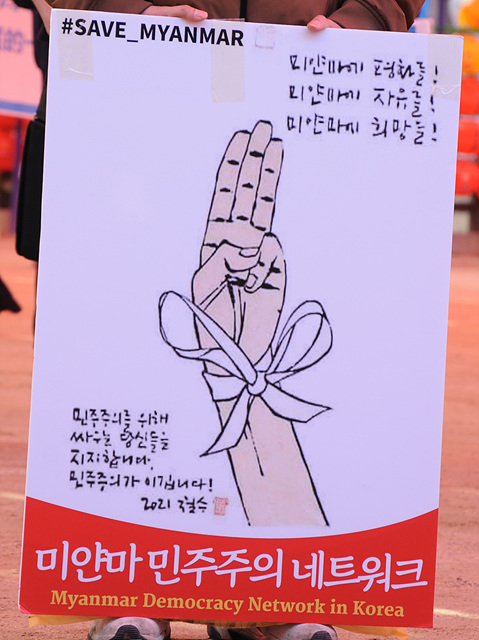 #SAVE_MYANMAR
미얀마에 평화를!
미얀마에 자유를!
미얀마에 희망을!
민주주의를 위해
싸우는 당신들을
지지합니다.
민주주의가 이깁니다!
2021
미얀마 민주주의 네트워크
Myanmar Democracy Network in Korea